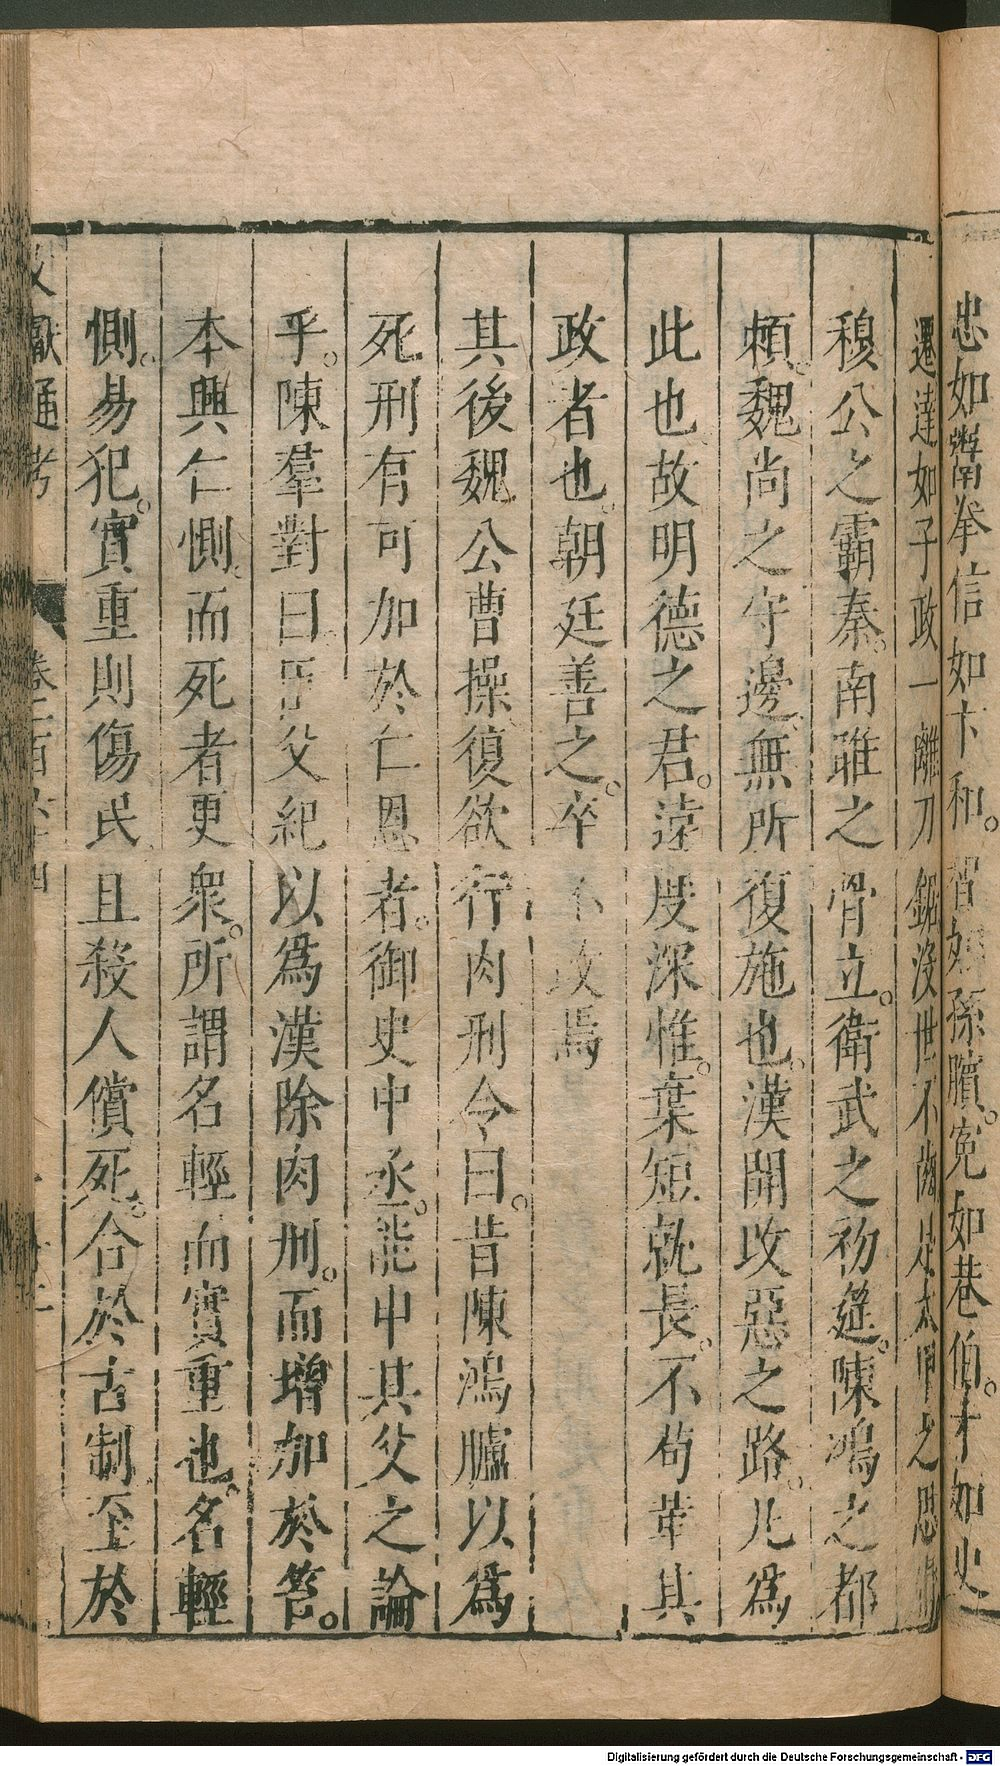 忠如鬻拳信如卞和智如孫臏寃如巷伯才如史
遷達如子政一離刀鋸没世不齒是太甲之思庸
穆公之霸秦南睢之骨立衛武之初筵陳鴻之都
頼魏尚之守邊無所復施也漢開改惡之路凡爲
此也故明德之君遠度深惟棄短就長不苟革其
政者也朝廷善之卒不改焉
其後魏公曹操復欲行肉刑令曰昔陳鴻臚以爲
死刑有可加於仁恩者御史中丞能申其父之論
乎陳羣對曰臣父紀以爲漢除肉刑而增加於笞
本興仁惻而死者更衆所謂名輕而實重也名輕
則易犯實重則傷民且殺人償死合於古制至於
文獻通考 卷一百六十四
Digitalisierung gefördert durch die Deutsche Forschungsgemeinschaft - DFG